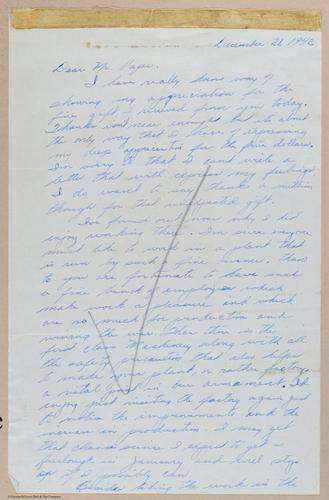 December 21 1942
Dear Mr. Pape:
I have really know way of
showing my appreciation for the
fine gift I received from you today.
Thanks isn't near enought but its about
the only way that I have of expressing
my deep appreciation for the five dollars.
I'm sorry is that I can't write a
letter that will express my feelings.
I do want to say thanks a million
though for that unexpected gift.
I've found out now why I did
enjoy working there. I'm sure everyone
must like to work in a plant that
is run by such a fine
to you are fortunate to have such
a fine bunch of employees which
make work a pleasure and which
are so much for production and
winning the war. Then there is the
first class Machinery along with all
the safety precaution that also helps
to make your plant, or rather factory
a vital part in our armament. I'd
enjoy just visiting the factory again just
to notice the improvements and the
increase in production. I may get
that chance since I expect to get a
furlough in January and will stop
in if I possibly can.
Besides taking the work in the